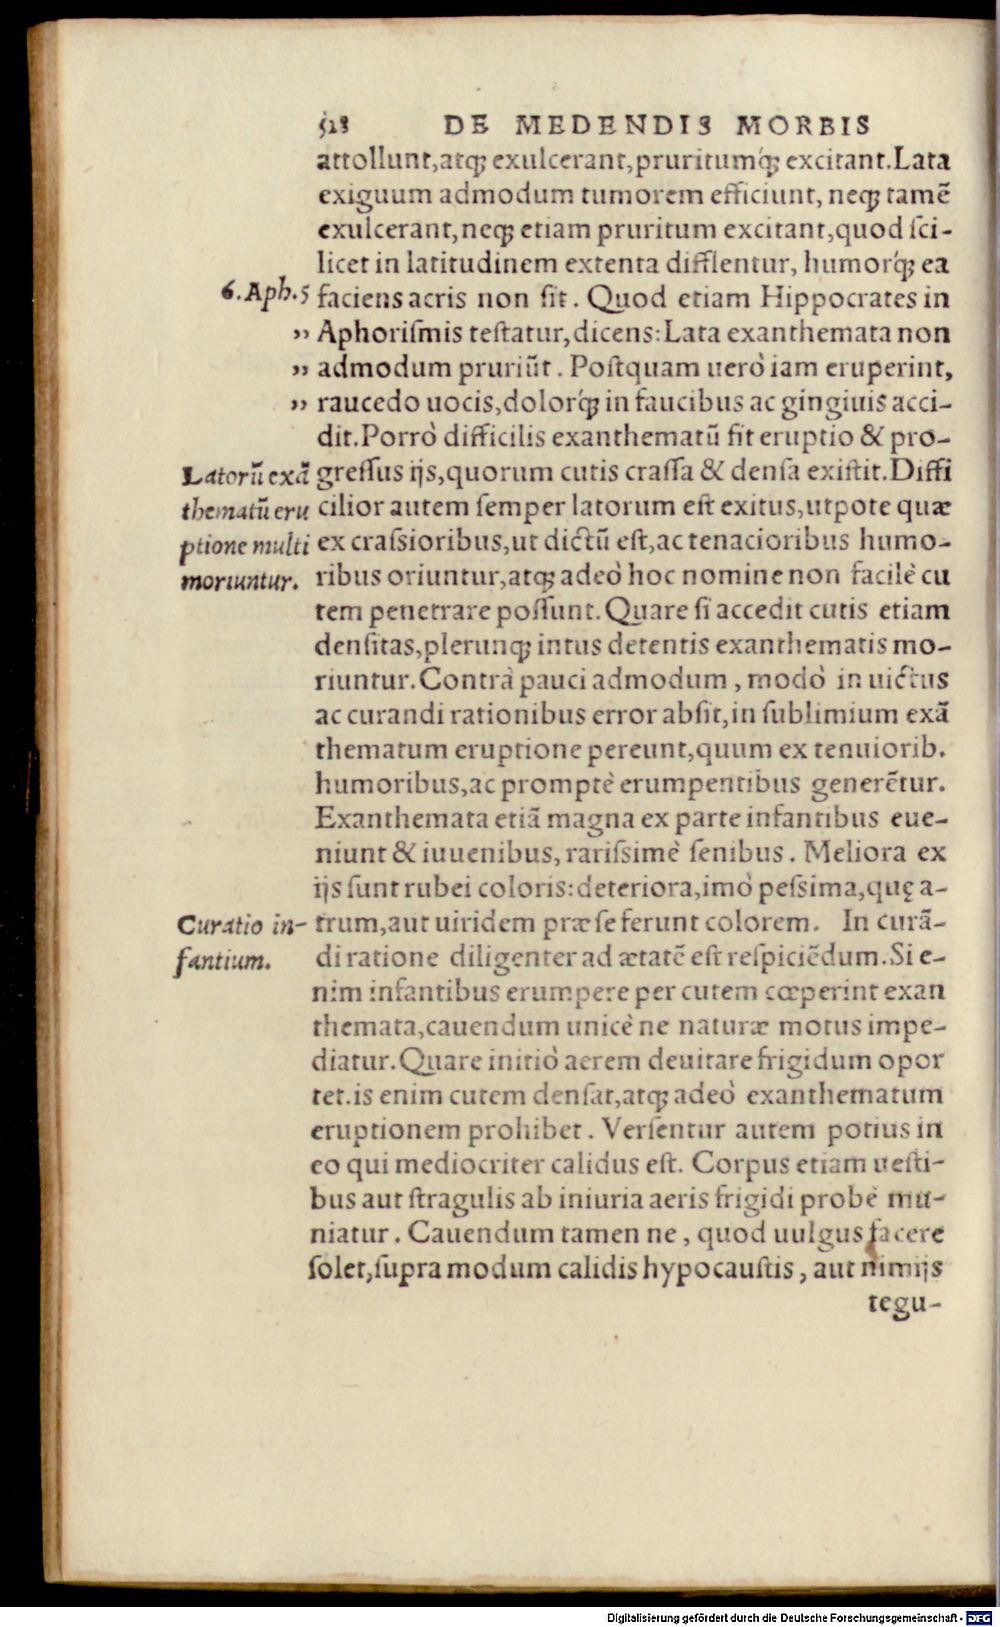 528 DE MEDENDIS MORBIS
attollunt,atq; exulcerant,pruritumq́; excitant.Lata
exiguum admodum tumorem efficiunt, neq; tamẽ
exulcerant,neq; etiam pruritum excitant,quod ſci-
licet in latitudinem extenta difflentur, humorq́; ea
6.Aph.5 faciens acris non ſit. Quod etiam Hippocrates in
„ Aphoriſmis teſtatur,dicens:Lata exanthemata non
„ admodum pruriũt. Poſtquam uerò iam eruperint,
„ raucedo uocis,dolorq́; in faucibus ac gingiuis acci-
dit.Porrò difficilis exanthematũ fit eruptio & pro-
Latorũ exã greſſus ijs,quorum cutis craſſa & denſa exiſtit.Diffi
thematũ eru cilior autem ſemper latorum eſt exitus,utpote quæ
ptione multi ex craſsioribus,ut dictũ eſt,ac tenacioribus humo-
moriuntur. ribus oriuntur,atq; adeò hoc nomine non facilè cu
tem penetrare poſſunt. Quare ſi accedit cutis etiam
denſitas,plerunq; intus detentis exanthematis mo-
riuntur. Contrà pauci admodum, modò in uictus
ac curandi rationibus error abſit,in ſublimium exã
thematum eruptione pereunt,quum ex tenuiorib.
humoribus,ac promptè erumpentibus generẽtur.
Exanthemata etiã magna ex parte infantibus eue-
niunt & iuuenibus, rariſsimè ſenibus. Meliora ex
ijs ſunt rubei coloris:deteriora,imò peſsima,quę a-
Curatio in- trum,aut uiridem præ ſe ferunt colorem. In curã-
fantium. di ratione diligenter ad ætatẽ eſt reſpiciẽdum.Si e-
nim infantibus erumpere per cutem cœperint exan
themata,cauendum unicè ne naturæ motus impe-
diatur. Quare initiò aerem deuitare frigidum opor
tet.is enim cutem denſat,atq; adeò exanthematum
eruptionem prohibet. Verſentur autem potius in
eo qui mediocriter calidus eſt. Corpus etiam ueſti-
bus aut ſtragulis ab iniuria aeris frigidi probè mu-
niatur. Cauendum tamen ne, quod uulgus facere
ſolet,ſupra modum calidis hypocauſtis, aut nimijs
tegu-
Digitalisierung gefördert durch die Deutsche Forschungsgemeinschaft - DFG